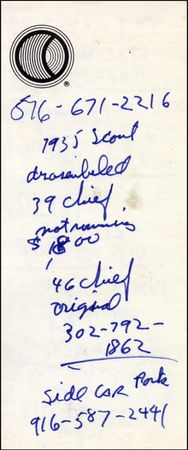 ®
516-671-2216
1935 Scout
39 chief
not running
$1800
46 chief
original
302-792-
1862
Side CAR Pork
916-587-2441